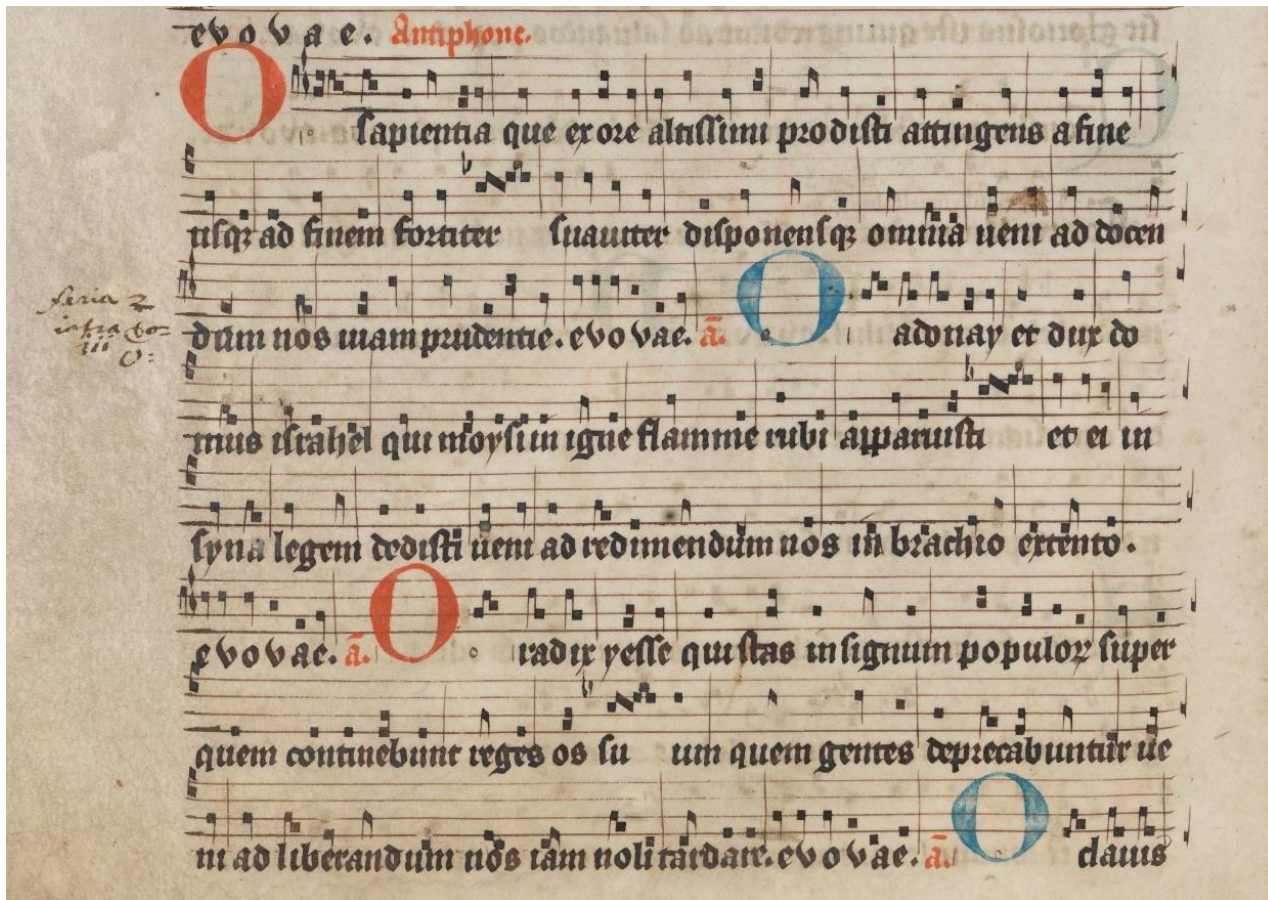 evovae. Antiphone.
O sapientia que ex ore altissimi prodisti attingens a fine
usqꝫ ad finem fortiter suauiter disponensqꝫ omnia ueni ad docen
dum nos uiam prudentie. evovae. a̅. O adonay et dux do
feria 2
infra
iii
O:
mus israhel qui moysi in igne flamme rubi apparuisti et ei in
syna legem dedisti ueni ad redimendum nos in brachio extento.
evovae. a̅. O radix yesse qui stas in signum populoꝝ super
quem continebunt reges os su um quem gentes deprecabuntur ue
ni ad liberandum nos iam noli tardare. evovae. a̅. O clauis